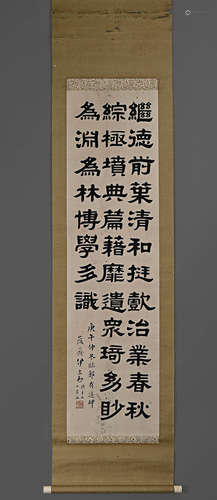 繼德前葉清和挺歊治業春秋
綜極墳典篇藉靡遺眾琦多眇
為淵為林博學多識
庚午仲冬臨郭有道碑
伊立勳